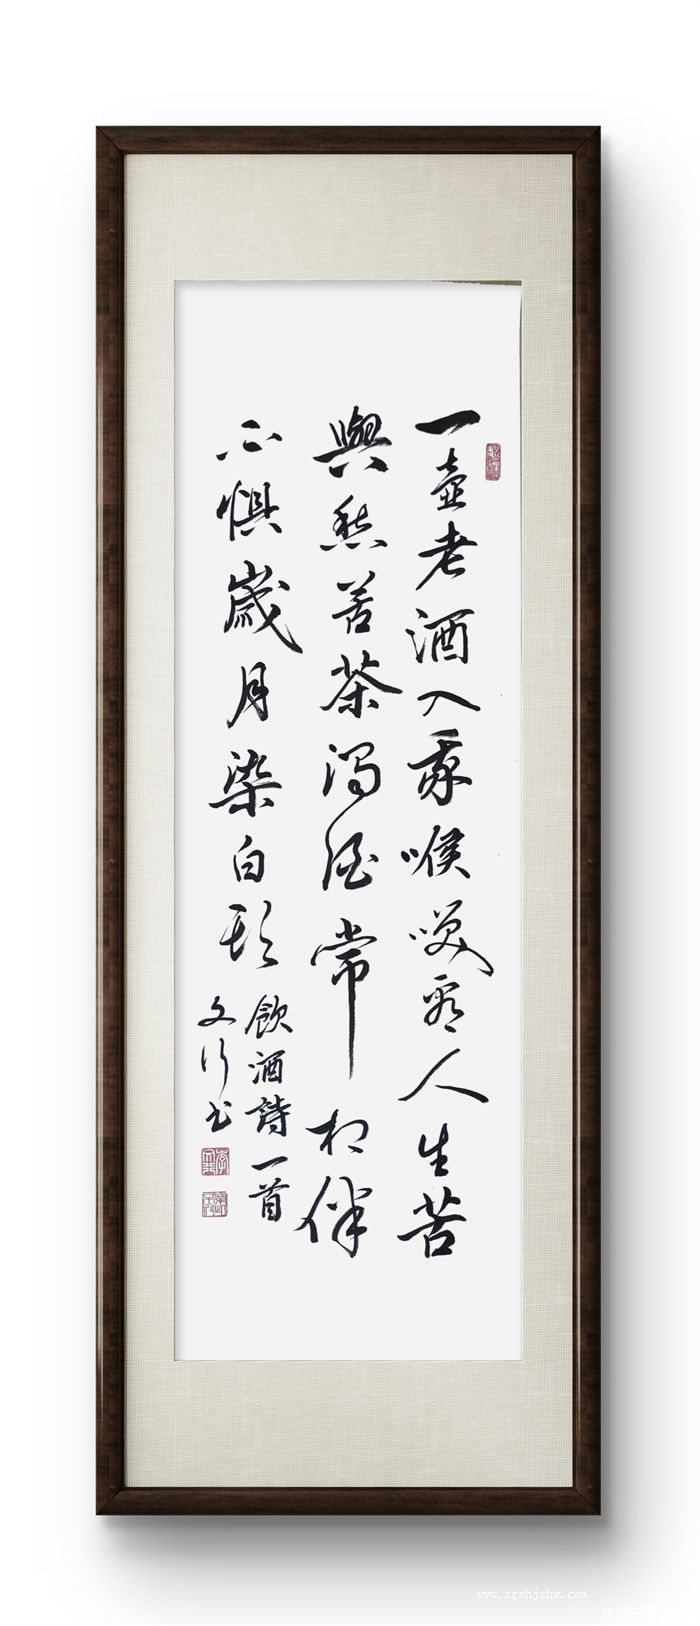 一壺老酒入我喉笑看人生苦
與愁苦茶濁酒常相伴
不懼歲月染白頭
飲酒詩一首
文行书
www.zgshjxhw.com